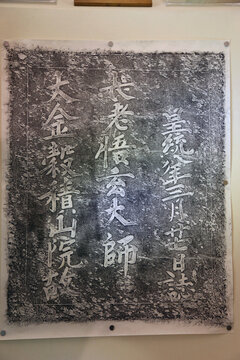 大金榖積山院故
長老悟玄大師
皇統八年三月廿七日誌